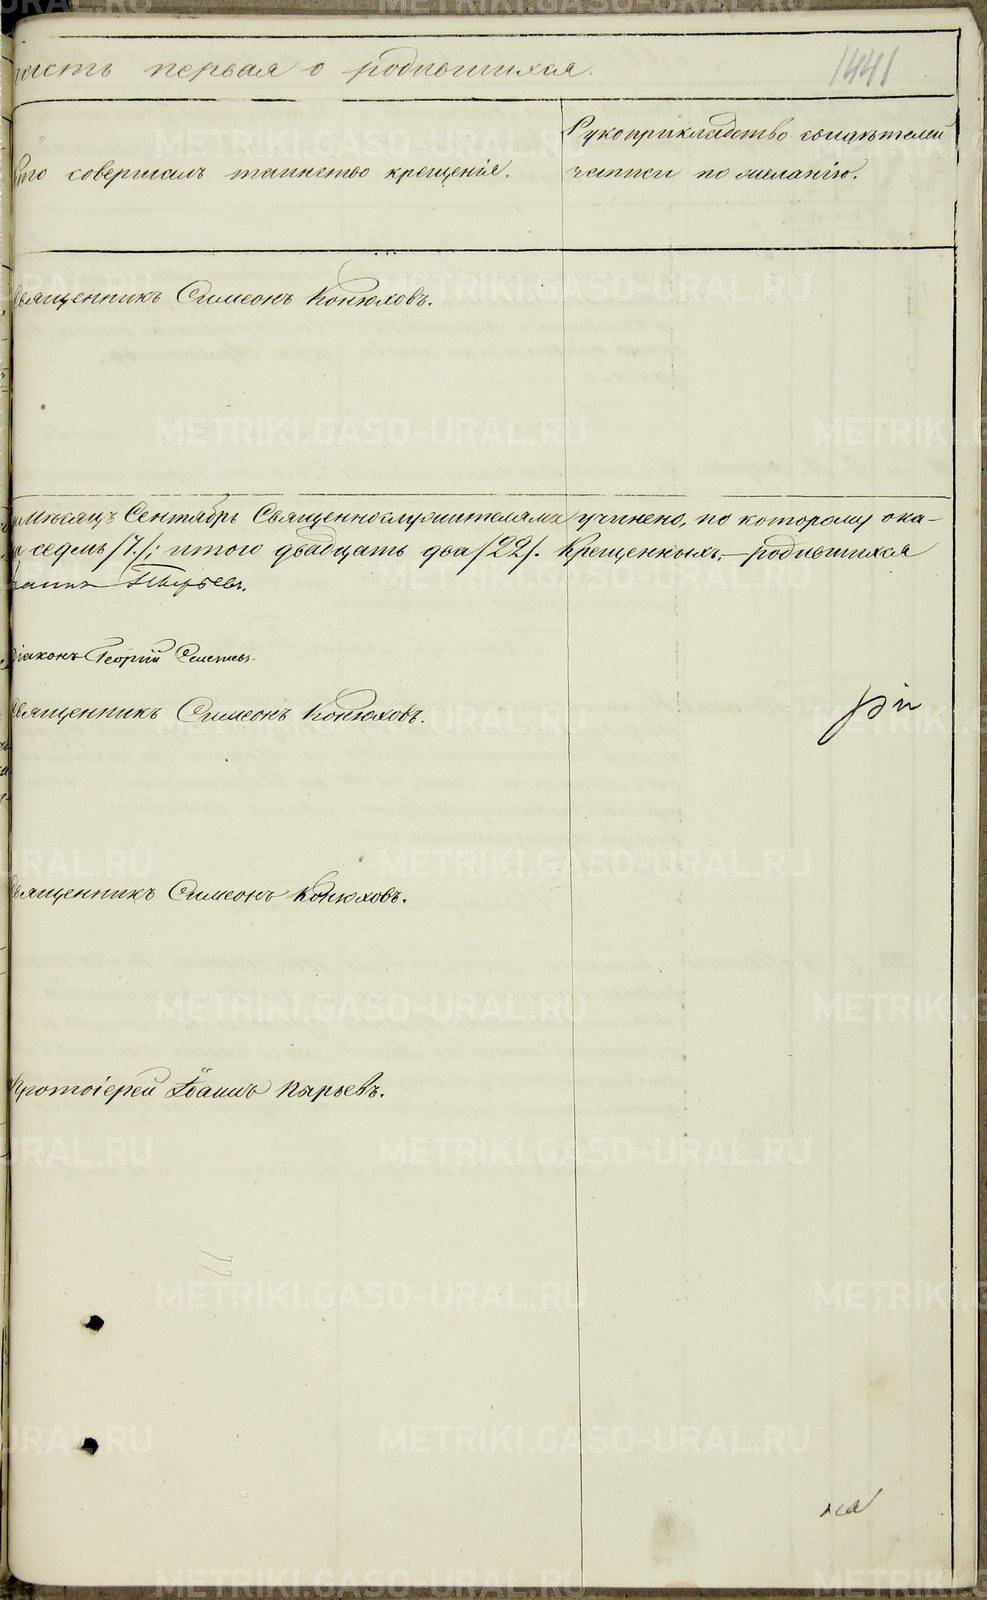 часть первая о родившихся. 1441
Кто совершалъ таинство крещенія.
Рукоприкладство свидѣтелей
записи по желанію.
Священникъ Симеонъ Конюховъ.
мѣсяцъ Сентябрь Священнослужителями учинено, по которому ока-
седмь /7./; итого двадцать два /22/. Крещенныхъ, — родившихся
Пырьевъ.
Діаконъ Георгій
Священникъ Симеонъ Конюховъ.
Священникъ Симеонъ Конюховъ.
Протоіерей Іоаннъ Пырьевъ.
METRIKI.GASO-URAL.RU